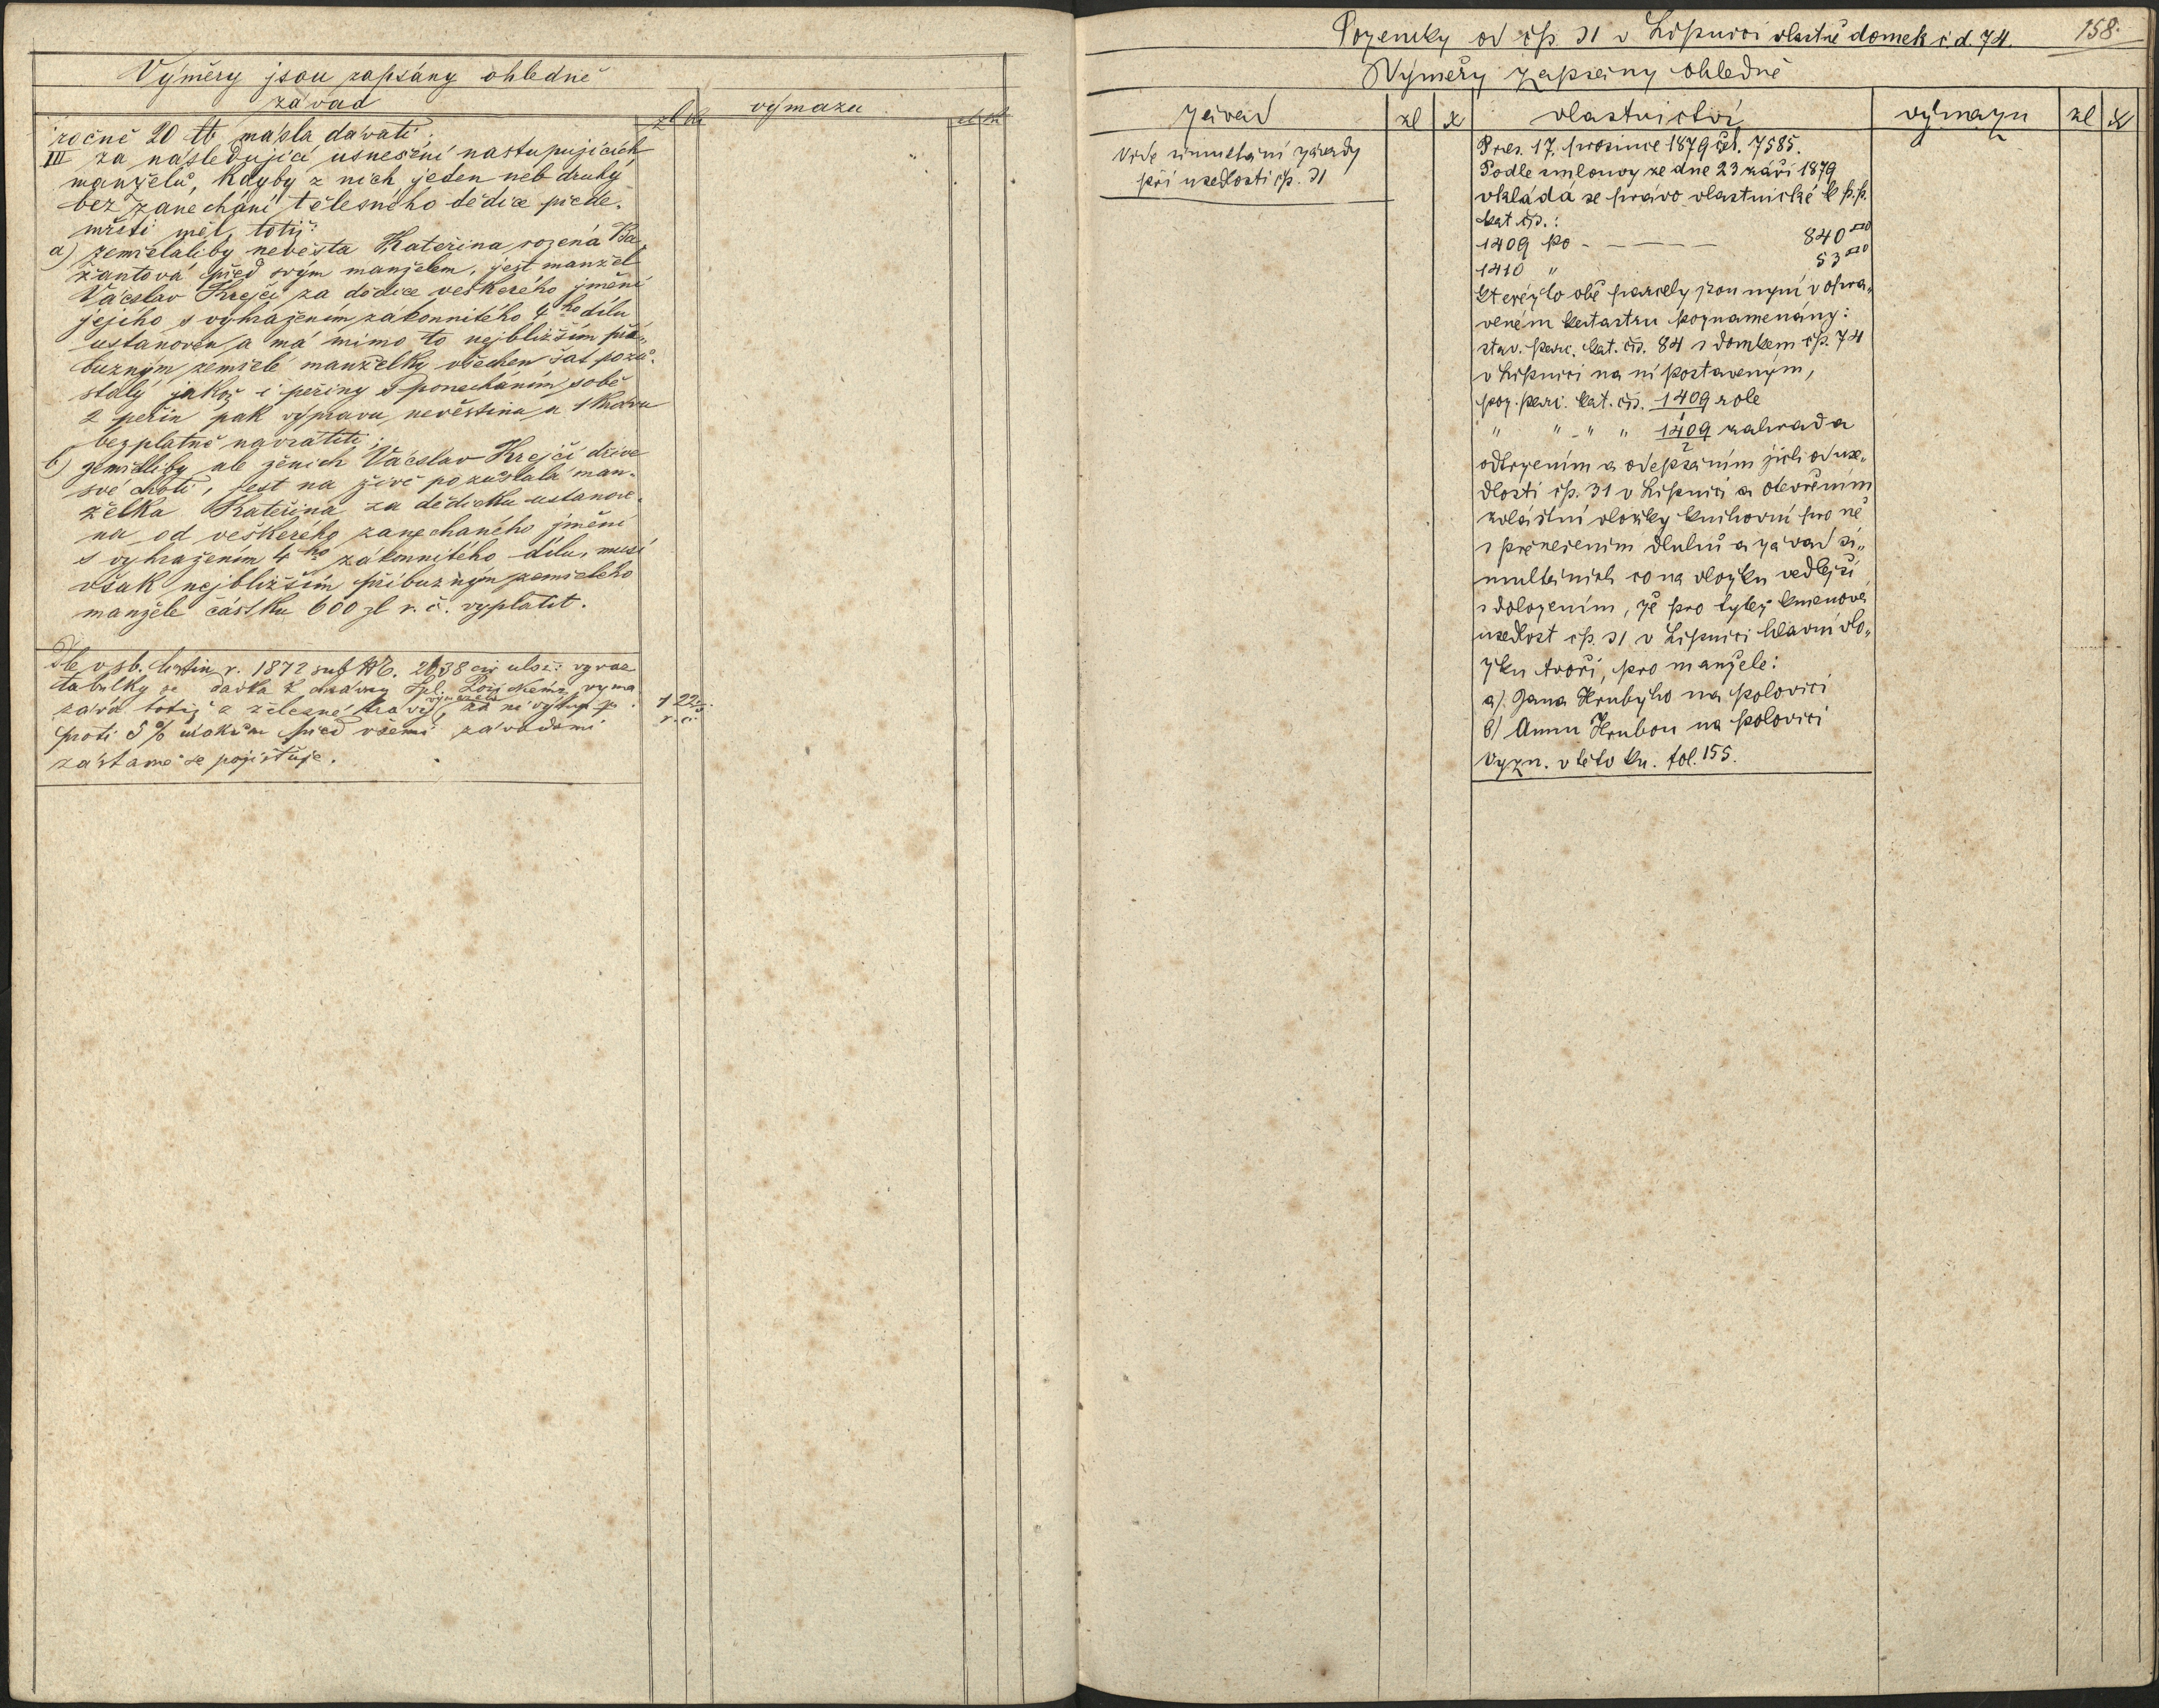 Výměry jsou zapsány ohledně
závad
výmazu
ročně 20 ℔ másla dávati.
III za následující usnešení nastupujících
manželů, kdyby z nich jeden neb druhý
bez zanechání tělesného dědice přede-
mříti měl, totiž:
a) zemřelaliby nevěsta Kateřina rozená Ba-
žantová před svým manželem, jest manžel
Václav Krejčí za dědice veškerého jmění
jejího s vyhražením zákonnitého 4ho dílu
ustanoven a má mimo to nejbližším pří-
buzným zemřelé manželky všechen šat pozů-
stalý jakož i peřiny s ponecháním sobě
2 peřin pak výpravu nevěstinu a 1 krávu
bezplatně navrátiti;
b) zemřelliby ale ženich Václav Krejčí dříve
své choti, jest na živě pozůstalá man-
želka Kateřina za dědičku ustanove-
na od veškerého zanechaného jmění
s vyhražením 4ho zákonnitého dílu, musí
však nejbližším příbuzným zemřelého
manžele částku 600 zl r. č. vyplatit.
Dle osb. listin r. 1872 sub Nō. 2638
tabulky se dávka z
zává totiž z železné krávy,
proti 5% úrokům před všemi závadami
zástavně se pojišťuje.
1 22
r. č.
Pozemky od čp. 31 v Lipnici vlastně domek č d. 74.
158.
Výměry zapsány ohledně
závad
zl
x
vlastnictví
výmazu
zl
x
Vide simultání závady
při usedlosti čp. 31
Pres. 17. prosince 1879 čís. 7585.
Podle smlouvy ze dne 23 září 1879
vkládá se právo vlastnické k p.p.
kat. čís.:
1409 po - — — — 840
1410 " 53
kterýto obě parcely jsou nyní v opra-
veném katastru poznamenány:
stav. parc. kat. čís. 84 s domkem čp. 74
v Lipnici na ní postaveným,
poz. parc. kat. čís. 1409/1 role
" " " " 1409/2 zahrada
odtržením a odepsáním jich od use-
dlosti čp. 31 v Lipnici a otevřením
zvláštní vložky knihovní pro ně
s přenesením dluhů a závad si-
multáních co na vložku vedlejší
s doložením, že pro tytéž kmenová
usedlost čp. 31 v Lipnici hlavní vlo-
žku tvoří, pro manžele:
a). Jana Hrubýho na polovici
b) Annu Hrubou na polovici
Vyzn. v této kn. fol. 155.